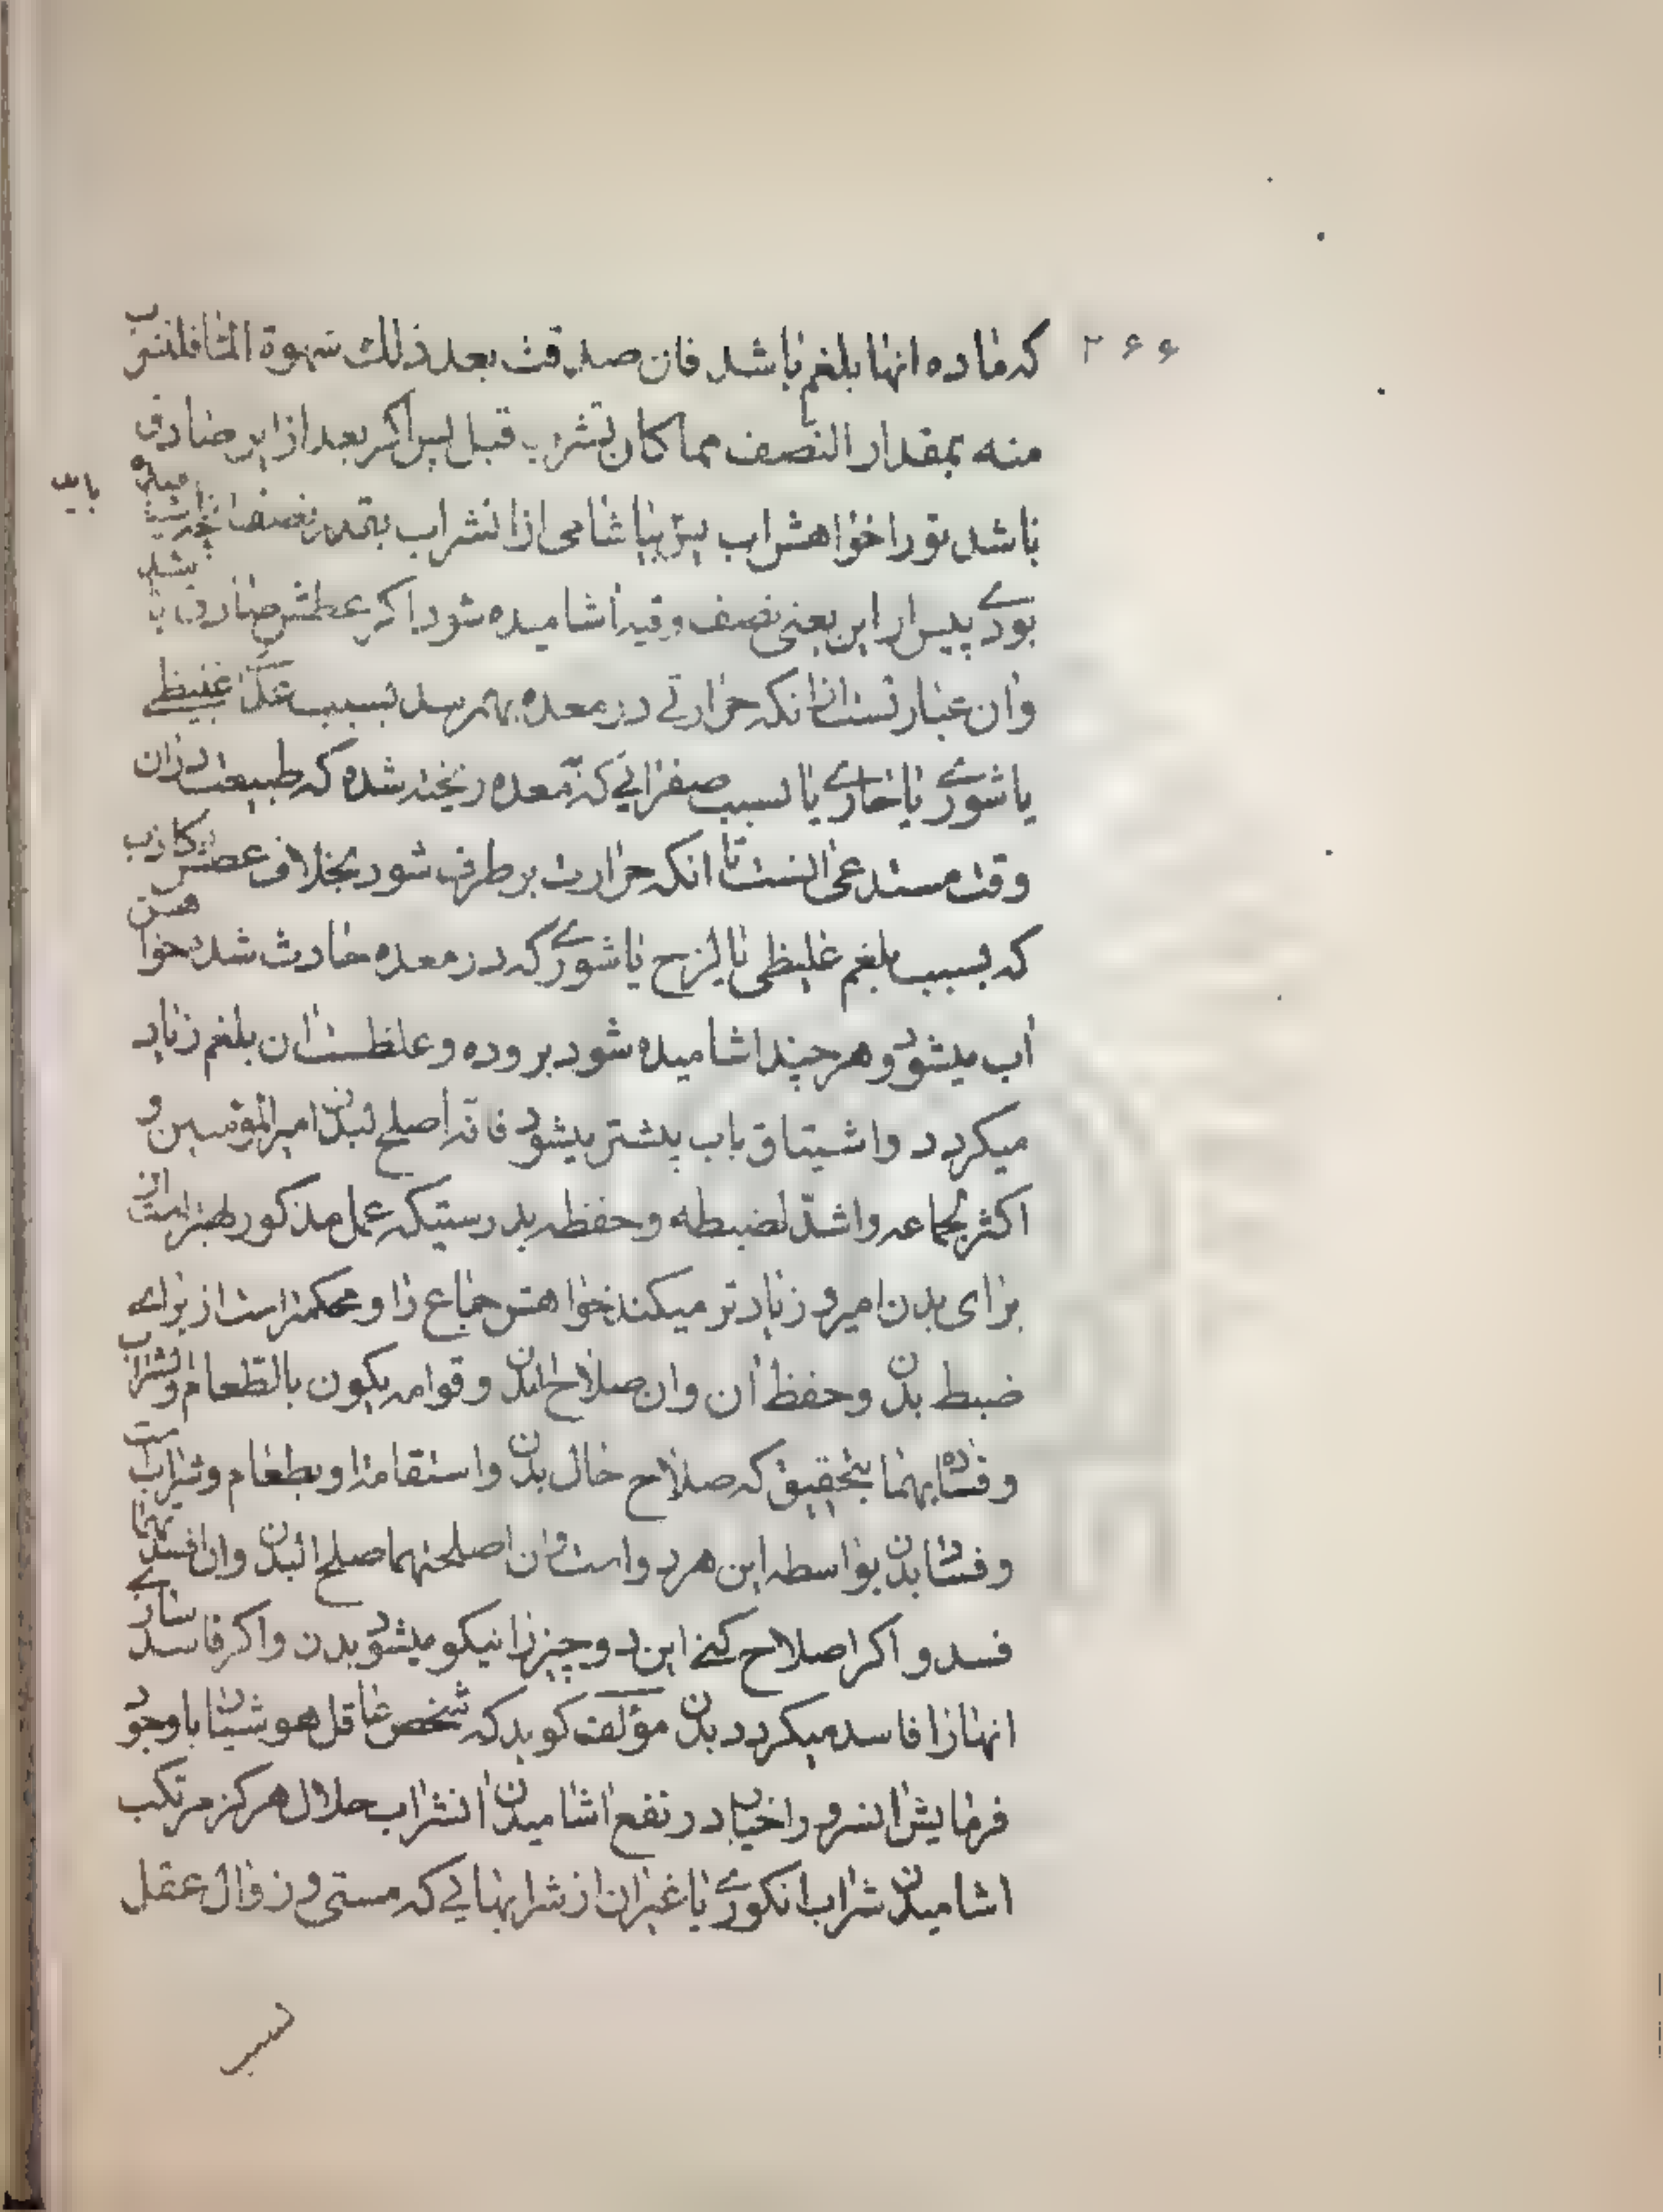 ۲۶۶
که ماده انها بلغم باشد فان صدقت بعد ذلك شهوة الماء فلیشرب
منه بمقدار النصف مما کان یشرب قبل پس اکر بعد از این صادق
باشد تو را خواهش اب پس بیاشامی از انشراب بقدر نصف انچه میاشامیده
باید
بودے پیش از این یعنی نصف وقیه اشامیده شود اکر عطش صادق باشد
وان عبارتست از انکه حرارتی در معده بهم رسد بسبب غذای غلیظی
یا شورے یا حارے یا بسبب صفرائی که بمعده ریخته شده که طبیعت در ان
وقت مستدعی انست تا انکه حرارت برطرف شود بخلاف عطش کاذب
که بسبب بلغم غلیظی یا لزج یا شورے که در معده حادث شد خواهش
اب میشود و هر چند اشامیده شود بروده و غلظت ان بلغم زیاد
میکردد و اشتیاق باب بیشتر میشود فانه اصلح لبدن امیر المؤمنین و
اکثر لجماعه واشدّ لضبطه وحفظه بدرستیکه عمل مذکور بهتر است از
برای بدن امیر و زیادتر میکند خواهش جماع را و محکمتر است از برای
ضبط بدن و حفظ ان وان صلاح البدن وقوامه یکون بالطعام والشراب
وفساده بهما بتحقیق که صلاح حال بدن و استقامت او بطعام و شراب است
و فساد بدن بواسطه این هر دو است وان اصلحتهما صلح البدن وان افسدتهما
فسد و اکر اصلاح کنی این دو چیز را نیکو میشود بدن و اکر فاسد سازے
انها را فاسد میکردد بدن مؤلف کوید که شخص عاقل هوشیار با وجود
فرمایش انسرور اخیار در نفع اشامیدن انشراب حلال هرکز مرتکب
اشامیدن شراب انکورے یا غیر ان از شرابهائی که مستی و زوال عقل